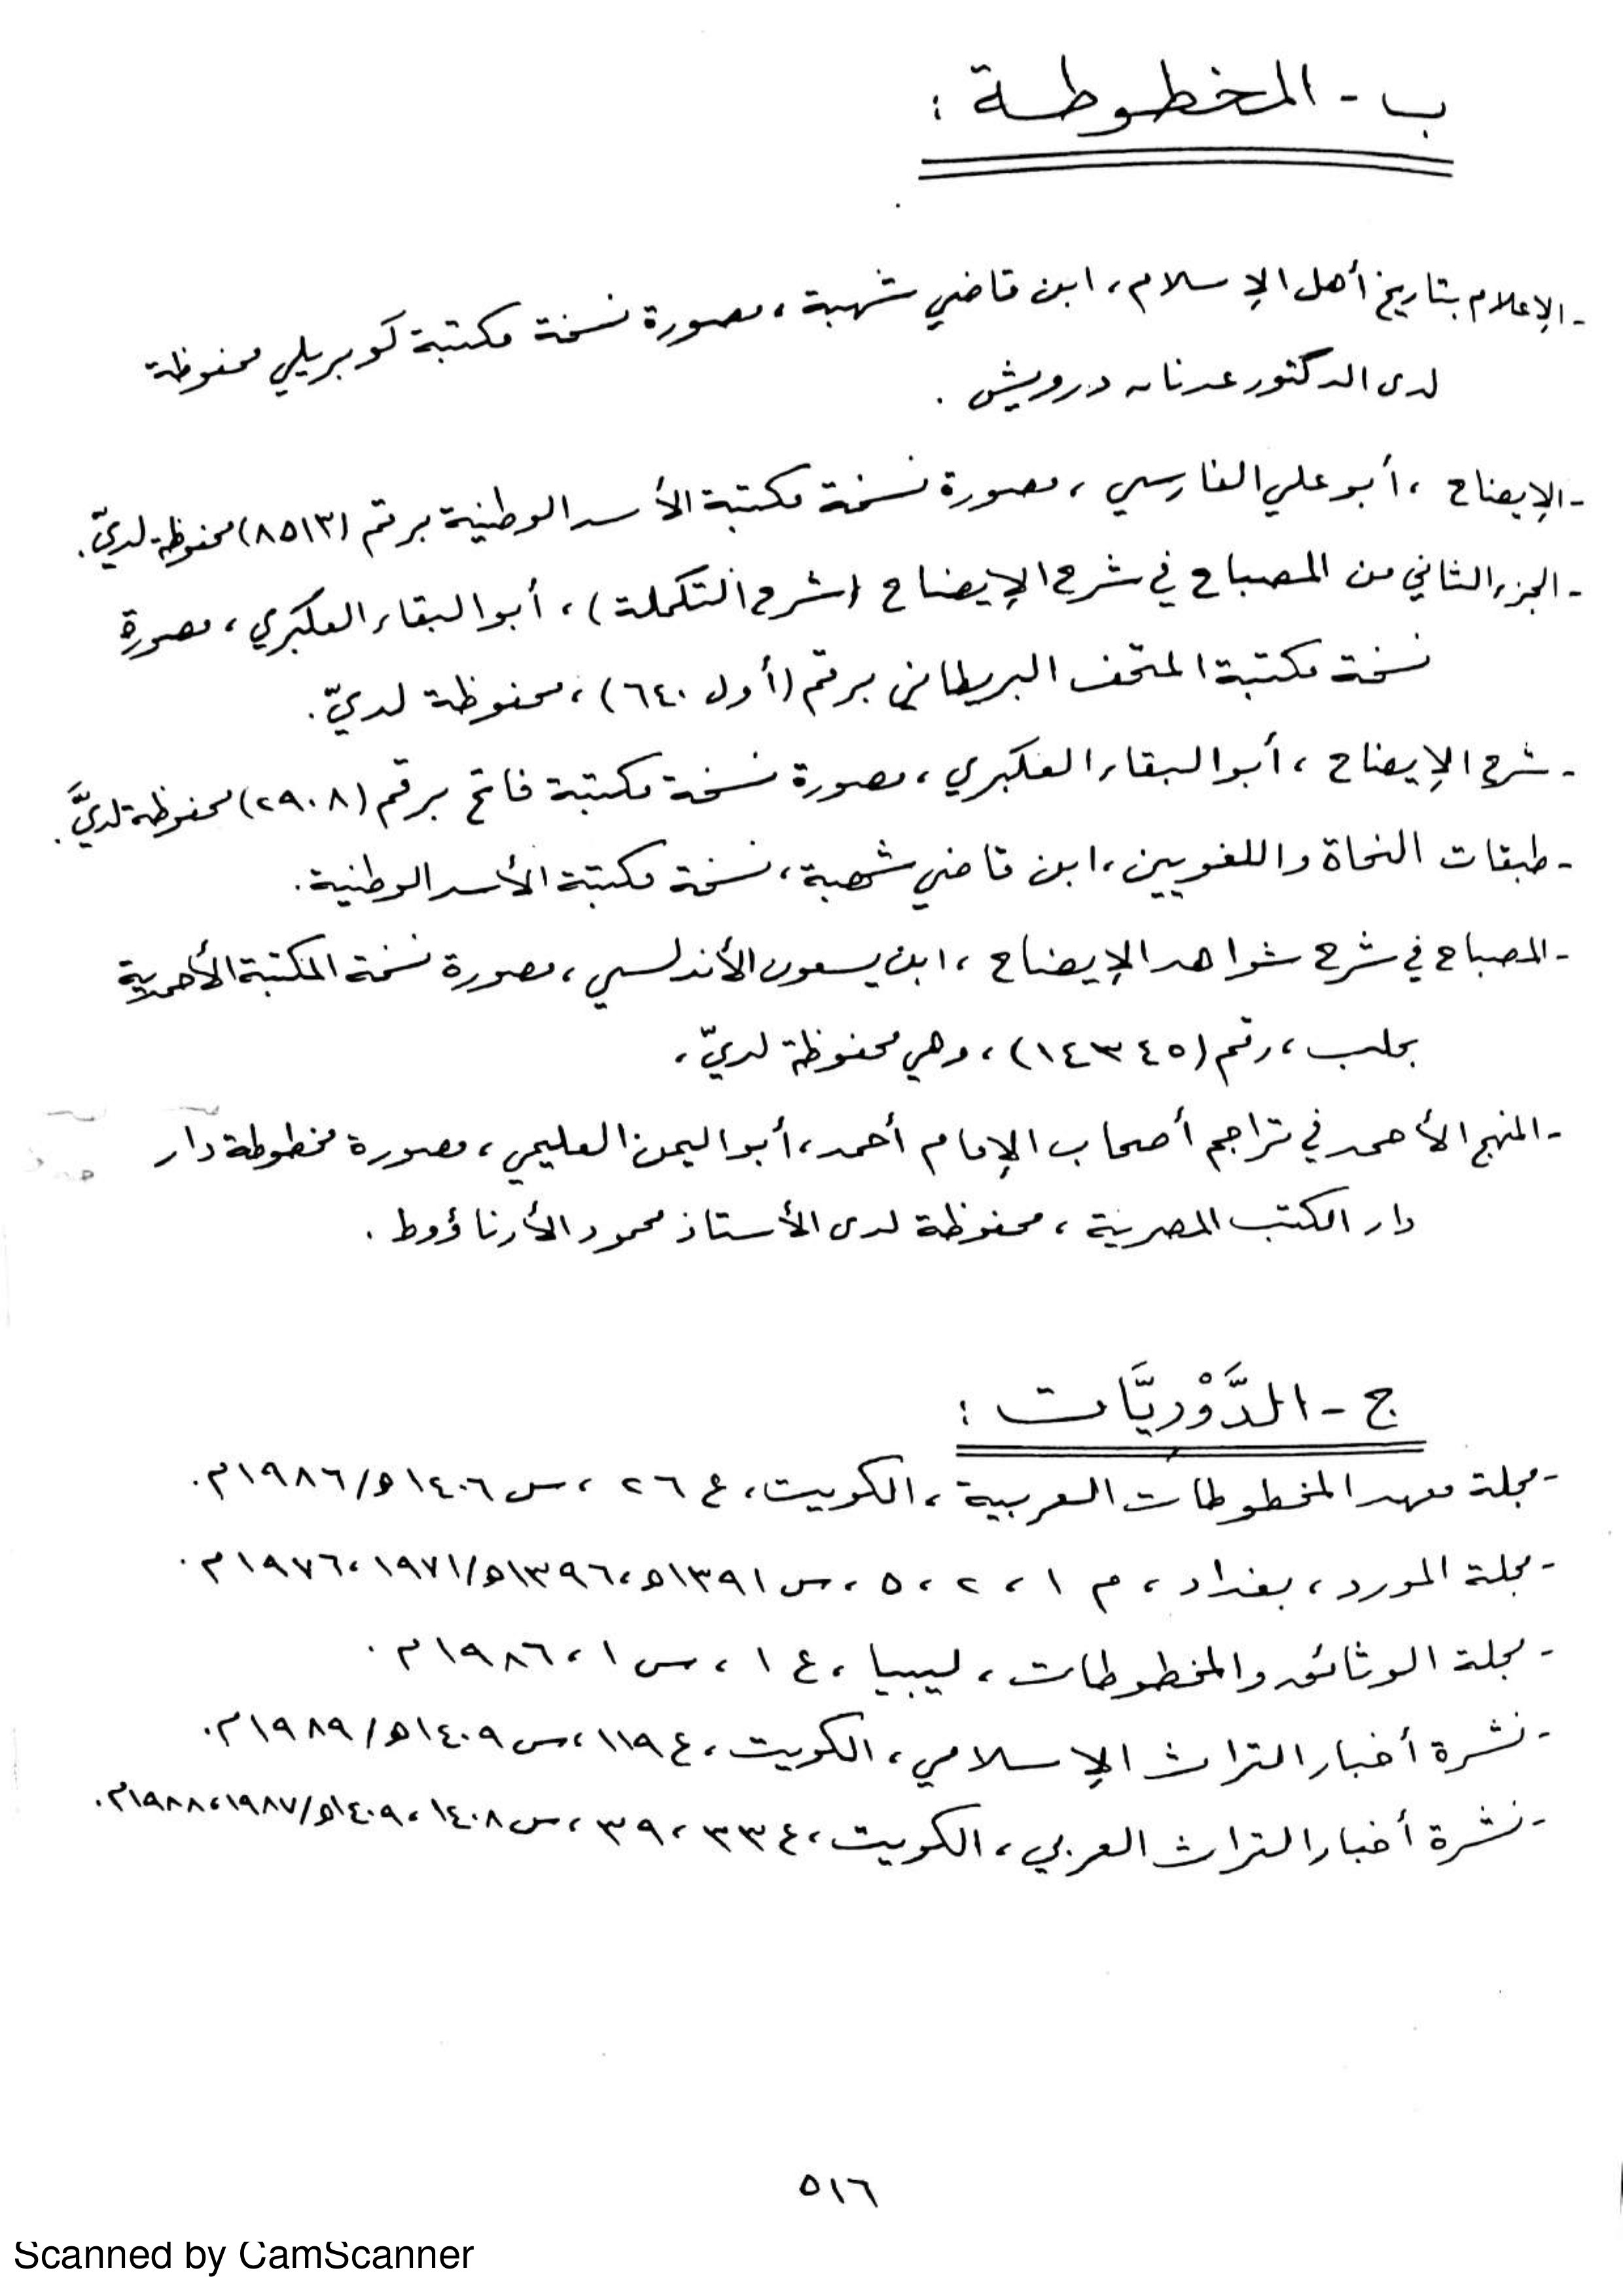 ب - المخطوطة :
- الإعلام بتاريخ أهل الإسلام، ابن قاضي شهبة، مصورة نسخة مكتبة كوبريلي محفوظة
لدى الدكتور عدنان درويش .
- الإيضاح ، أبو علي الفارسي ، مصورة نسخة مكتبة الأسد الوطنية برقم (٨٥١٣) محفوظة لديّ .
- الجزء الثاني من المصباح في شرح الإيضاح (شرح التكملة) ، أبو البقاء العكبري ، مصورة
نسخة مكتبة المتحف البريطاني برقم (أول ٦٤٠) ، محفوظة لديّ .
- شرح الإيضاح ، أبو البقاء العكبري ، مصورة نسخة مكتبة فاتح برقم (٢٩٠٨) محفوظة لديَّ .
- طبقات النحاة واللغويين ، ابن قاضي شهبة ، نسخة مكتبة الأسد الوطنية .
- المصباح في شرح شواهد الإيضاح ، ابن يسعون الأندلسي ، مصورة نسخة المكتبة الأحمدية
بحلب ، رقم (١٤٣٤٥) ، وهي محفوظة لديّ .
- المنهج الأحمد في تراجم أصحاب الإمام أحمد ، أبو اليمن العليمي ، مصورة مخطوطة دار
دار الكتب المصرية ، محفوظة لدى الأستاذ محمود الأرناؤوط .
ج - الدَّوْريَّات :
- مجلة معهد المخطوطات العربية ، الكويت ، ع ٢٦ ، س ١٤٠٦ه/١٩٨٦م .
- مجلة المورد ، بغداد ، م ١ ، ٢ ، ٥ ، س ١٣٩١ه ، ١٣٩٦ه/١٩٧١ ، ١٩٧٦م .
- مجلة الوثائق والمخطوطات ، ليبيا ، ع ١ ، س ١ ، ١٩٨٦م .
- نشرة أخبار التراث الإسلامي ، الكويت ، ع ١١٩ ، س ١٤٠٩ه/١٩٨٩م .
- نشرة أخبار التراث العربي ، الكويت ، ع ٣٣ ، ٣٩ ، س ١٤٠٨ ، ١٤٠٩ه/١٩٨٧ ، ١٩٨٨م .
٥١٦
Scanned by CamScanner